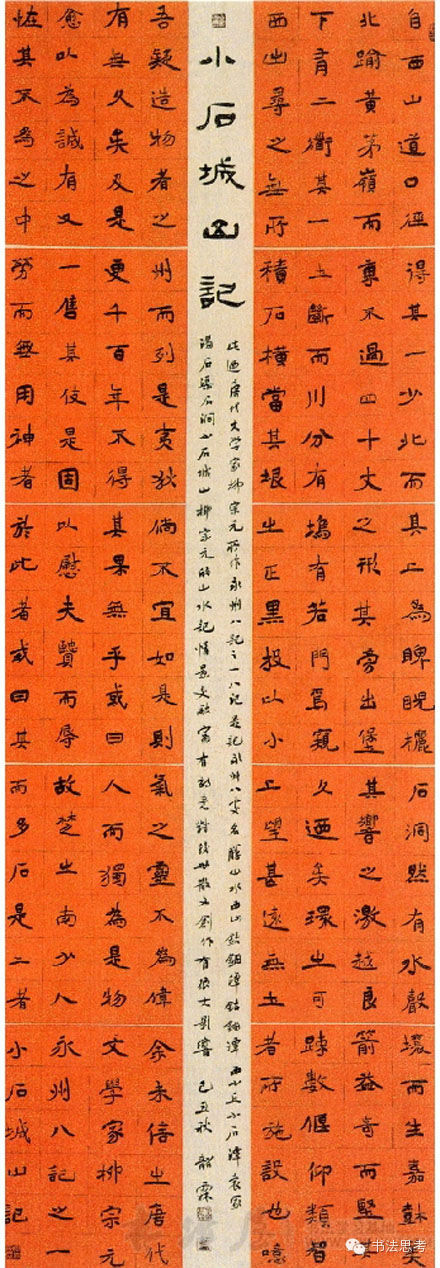 自西山道口徑
北踰黃茅嶺而
下有二衢其一
西出尋之無所
得其一少北而
東不過四十丈
土斷而川分有
積石橫當其垠
其上為睥睨欐
之形其旁出堡
塢有若門焉窺
之正黑投以小
石洞然有水聲
其響之激越良
久迺矣環之可
上望甚遠無土
壤而生嘉樹美
箭益奇而堅其
踈數偃仰類智
者所施設也噫
小石城山記
此迺唐代文學家柳宗元所作永州八記之一八記是記永州八處名勝山水西山鈷鉧潭鈷鉧潭西小丘小石潭袁家
渴石渠石澗小石城山柳宗元的山水記情景交融富有新意對後世散文創作有很大影響 己丑秋 韶霖
吾疑造物者之
有無久矣及是
愈以為誠有又
怪其不為之中
州而列是夷狄
更千百年不得
一售其伎是固
勞而無用神者
倘不宜如是則
其果無乎或曰
以慰夫賢而辱
於此者或曰其
氣之靈不為偉
人而獨為是物
故楚之南少人
而多石是二者
余未信之唐代
文學家柳宗元
永州八記之一
小石城山記
书法思考